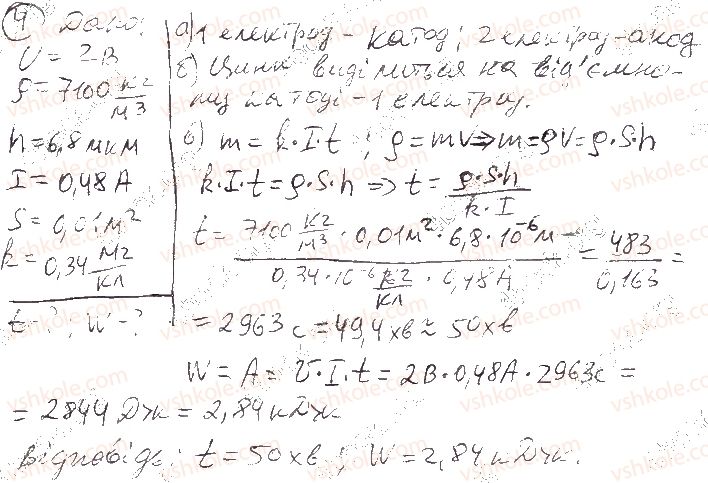 4 Дано:
U = 2В
ρ = 7100 кг/м³
h = 6,8 мкм
I = 0,48 А
S = 0,01 м²
k = 0,34 мг/Кл
t - ?, W - ?
а) 1 електрод - катод; 2 електрод - анод
б) Цинк виділиться на від'ємно-
му катоді - 1 електрод.
в) m = k·I·t ; ρ = mV ⇒ m = ρV = ρ·S·h
k·I·t = ρ·S·h ⇒ t = ρ·S·h / k·I
t = 7100 кг/м³ · 0,01м² · 6,8·10⁻⁶м / 0,34·10⁻⁶ кг/Кл · 0,48А = 483 / 0,163 =
= 2963 с = 49,4 хв ≈ 50 хв
W = A = U·I·t = 2В·0,48А·2963с =
= 2844 Дж = 2,84 кДж
Відповідь: t = 50 хв ; W = 2,84 кДж.
vshkole.com